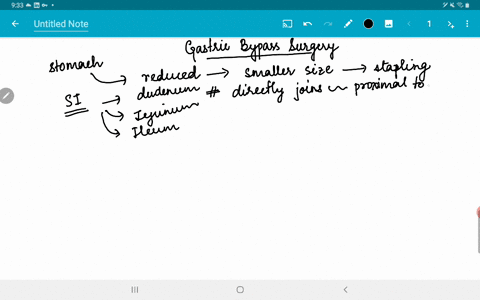 9:33
Untitled Note
1
Gastric Bypass Surgery
stomach → reduced → smaller size → stapling
SI → dudenum # directly joins ~ proximal to
→ Jejunum
→ Ileum